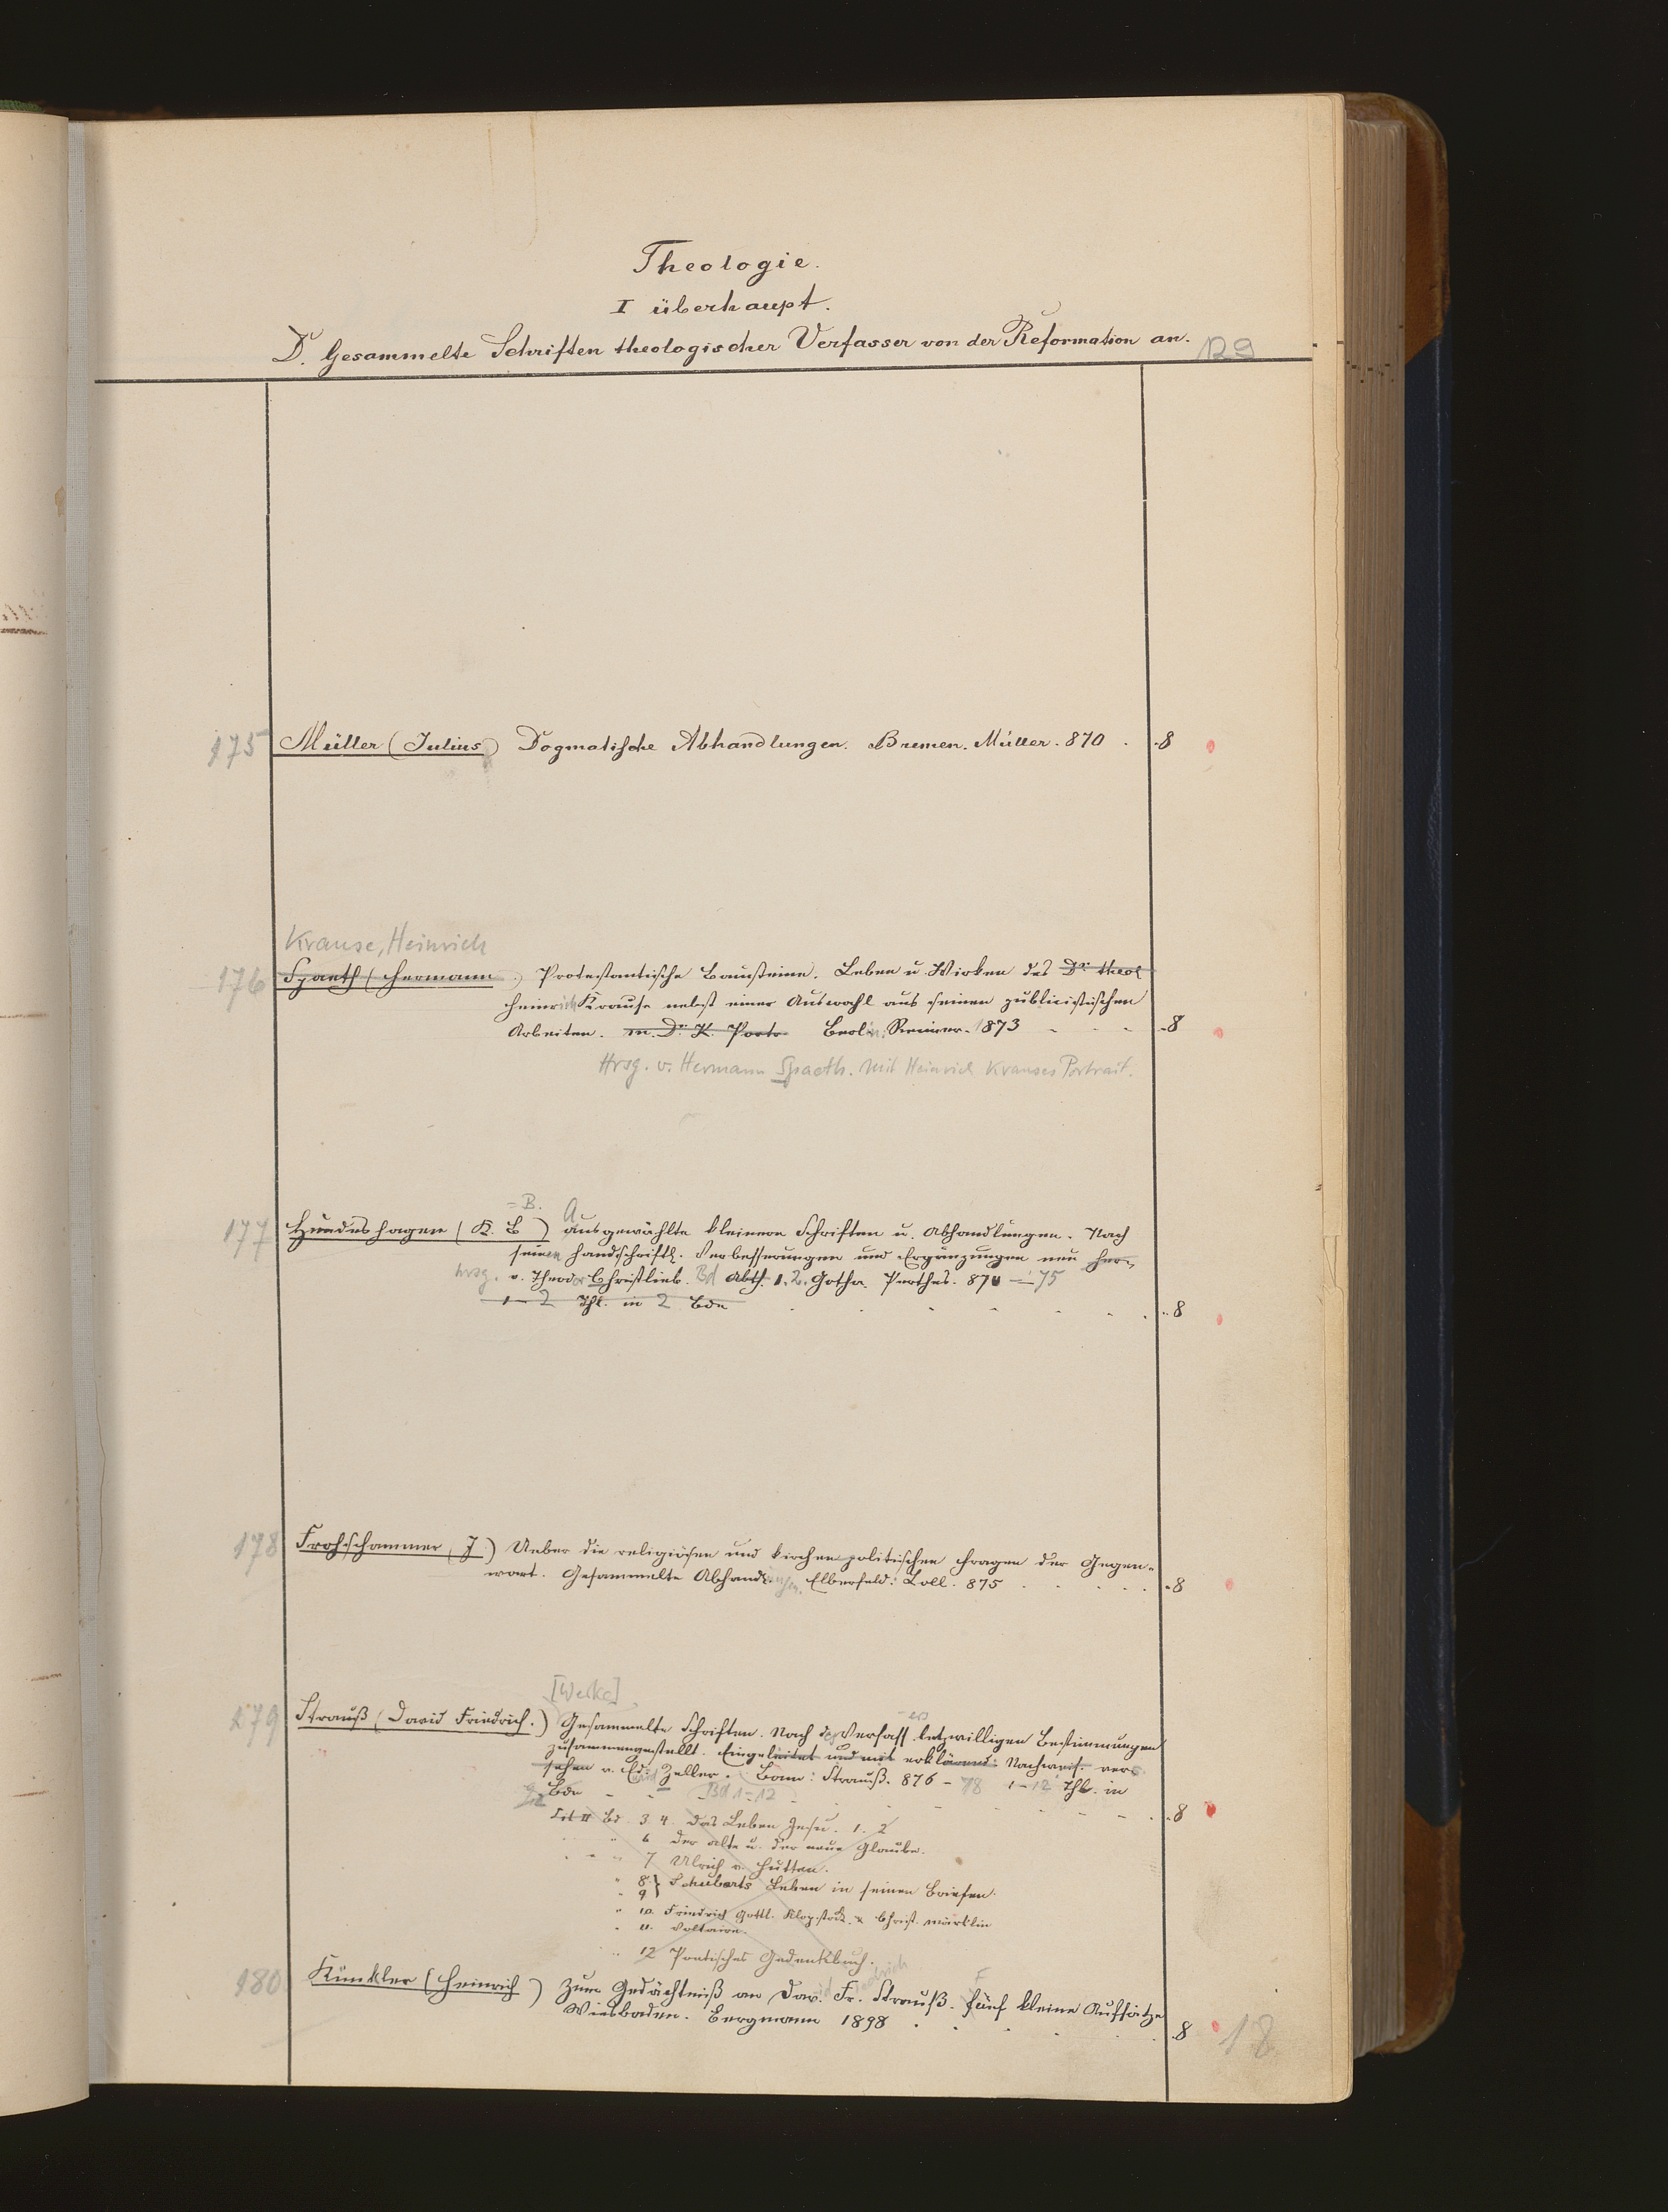 Theologie.
I überhaupt.
D. Gesammelte Schriften theologischer Verfasser von der Reformation an. 129
175 Müller (Julius) Dogmatische Abhandlungen. Bremen. Müller. 870 . 8
Krause, Heinrich
176 Spaeth (Hermann.) Protestantische Bausteine. Leben u. Wirken des Dr. theol
Heinrich Krause nebst einer Auswahl aus seinen publicistischen
Arbeiten. m. Dr. K. Portr. Berlin: Reimer. 1873 - - - 8
Hrsg. v. Hermann Spaeth. Mit Heinrich Krauses Portrait.
=B. A
177 Hundeshagen (K. B) ausgewählte kleinere Schriften u. Abhandlungen. Nach
seinen handschriftl. Verbesserungen und Ergänzungen neu her-
hrsg. v. Theodor Christlieb. Bd Abth. 1. 2. Gotha. Perthes. 874 - 75
1 - 2 Thl. in 2 Bde . . . . . 8
178 Frohschammer (J.) Ueber die religiösen und kirchenpolitischen Fragen der Gegen-
wart. Gesammelte Abhandlungen. Elberfeld: Loll. 875 . . . . . 8
[Werke]
179 Strauß (David Friedrich.) Gesammelte Schriften. Nach des Verfassers letzwilligen Bestimmungen
zusammengestellt. Eingeleitet und mit erklärend. Nachweis. ver-
sehen v. Eduard Zeller. Bonn: Strauß. 876 - 78 1 - 12 Thl. in
12 Bde - - Bd 1-12 - - - - - 8
Tit II Bd. 3. 4. Das Leben Jesu. 1. 2
" " 6 Der alte u. der neue Glaube.
" " 7 Ulrich v. Hutten.
" 8 } Schubarts Leben in seinen Briefen.
" 9
" 10. Friedrich Gottl. Klopstock. u Christ. Märklin
" 11. Voltaire.
" 12 Poetisches Gedenkbuch.
180 Künkler (Heinrich) Zum Gedächtniß an David Friedrich Strauß. Fünf kleine Aufsätze
Wiesbaden. Bergmann 1898 . . . . . 8
18